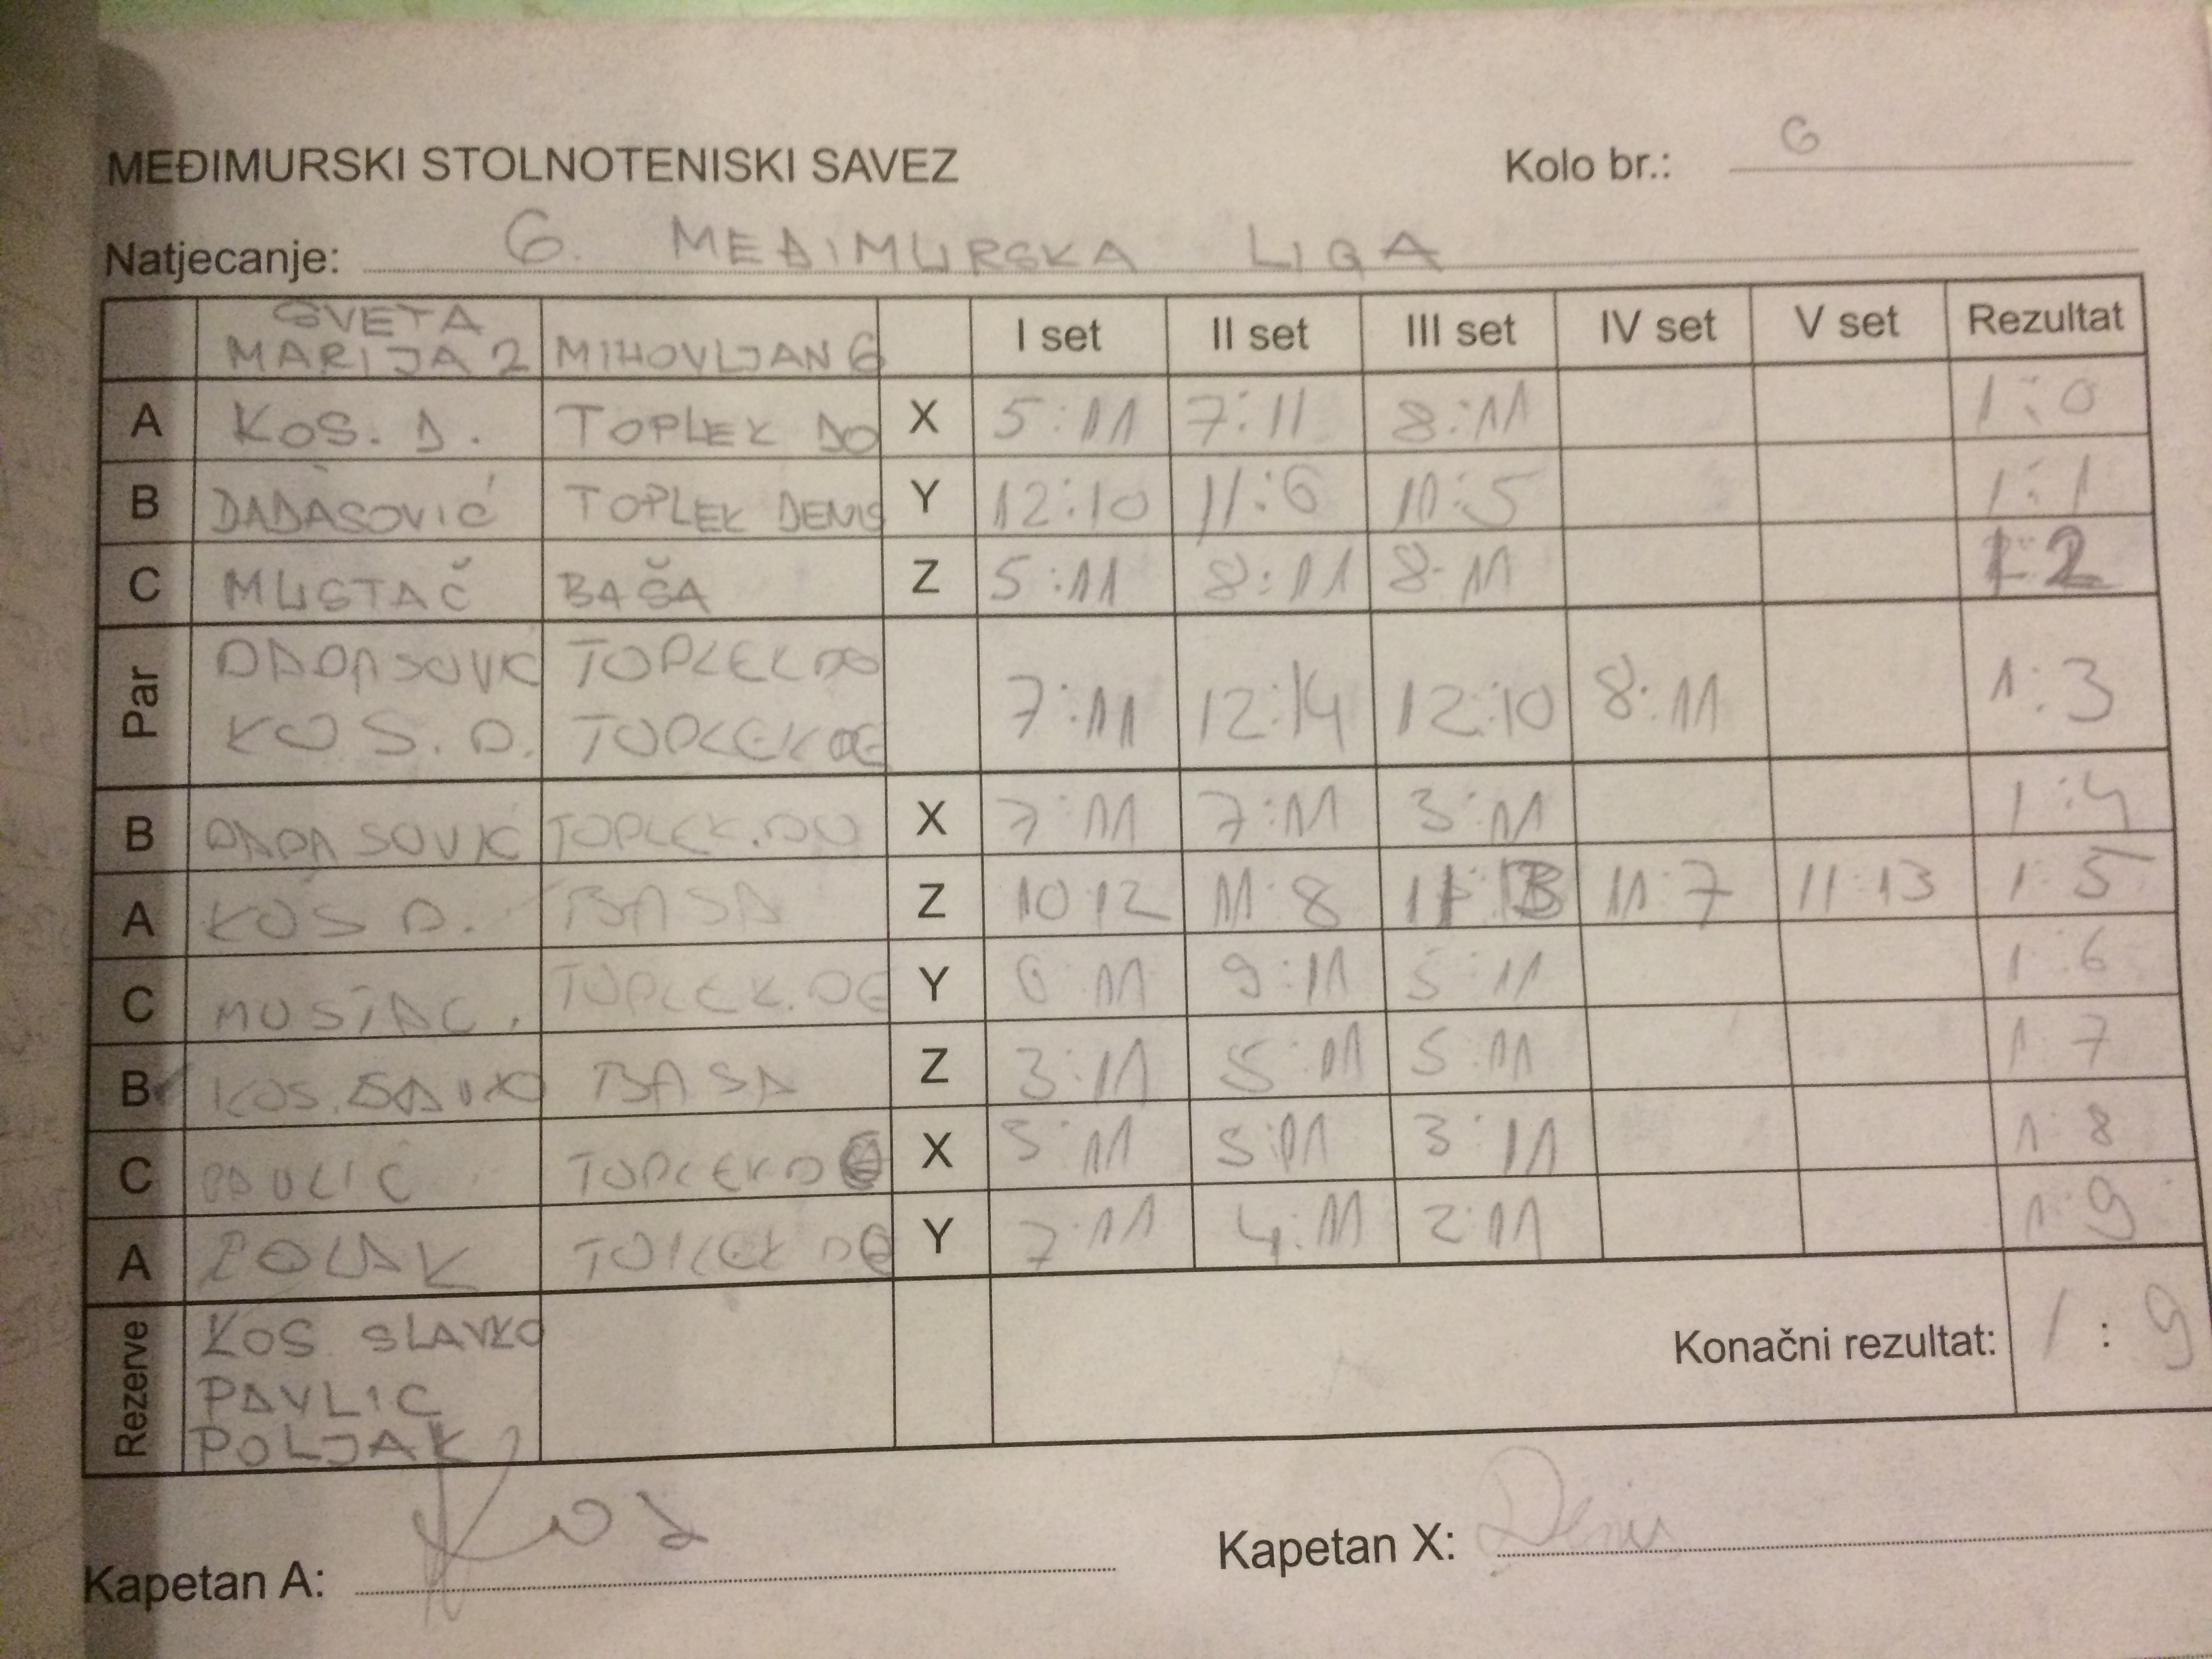 MEĐIMURSKI STOLNOTENISKI SAVEZ Kolo br.: 6
Natjecanje: 6. MEĐIMURSKA LIGA
SVETA MARIJA 2 MIHOVLJAN 6 I set II set III set IV set V set Rezultat
A KOS. D. TOPLEK DO X 5:11 7:11 8:11 1:0
B DADASOVIĆ TOPLEK DENIS Y 12:10 11:6 11:5 1:1
C MUSTAČ BAŠA Z 5:11 8:11 8:11 1:2
Par DADASOVIC TOPLEK DO
KOS. D. TOPLEK DE 7:11 12:14 12:10 8:11 1:3
B DADASOVIĆ TOPLEK. DO X 7:11 7:11 3:11 1:4
A KOS D. BASA Z 10:12 11:8 11:13 11:7 11:13 1:5
C MUSTAC. TOPLEK. DE Y 6:11 9:11 5:11 1:6
B KOS. BASA Z 3:11 5:11 5:11 1:7
C PAVLIC TOPLEK X 5:11 5:11 3:11 1:8
A POLJAK TOPLEK DE Y 7:11 4:11 2:11 1:9
Rezerve KOS SLAVKO
PAVLIC
POLJAK
Konačni rezultat: 1:9
Kapetan A: Kos Kapetan X: Denis